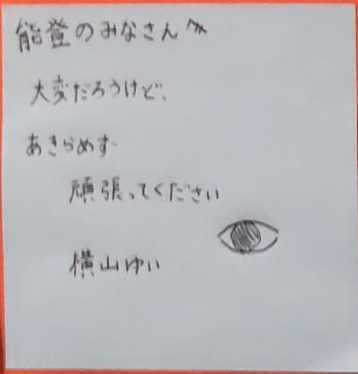 能登のみなさんへ
大変だろうけど、
あきらめず
頑張ってください
横山ゆい